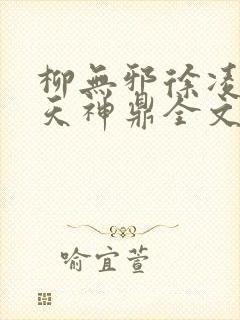 柳無邪徐凌
天神鼎全文
喻宜萱